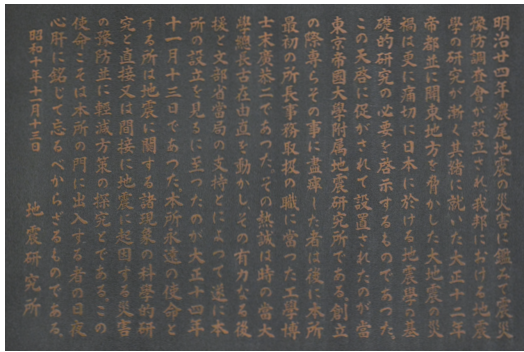 明治廿四年濃尾地震の災害に鑑みて震災
豫防調査會が設立され、我邦における地震
學の研究が漸く其緒に就いた、大正十二年
帝都並に關東地方を脅かした大地震の災
禍は更に痛切に日本に於ける地震學の基
礎的研究の必要を啓示するものであつた。
この天啓に促がされて設置されたのが當
東京帝國大學附属地震研究所である。創立
の際専らその事に盡瘁した者は後に本所
最初の所長事務取扱の職に當つた工學博
士末廣恭二であつた。その熱誠は時の當大
學總長古在由直を動かし、その有力なる後
援と文部省當局の支持とによつて遂に本
所の設立を見るに至つたのが大正十四年
十一月十三日であつた。本所永遠の使命と
する所は地震に關する諸現象の科學的研
究と直接又は間接に地震に起因する災害
の豫防並に輕減方策の探究とである。この
使命こそは本所の門に出入する者の日夜
心肝に銘じて忘るべからざるものである。
昭和十年十一月十三日
地震研究所